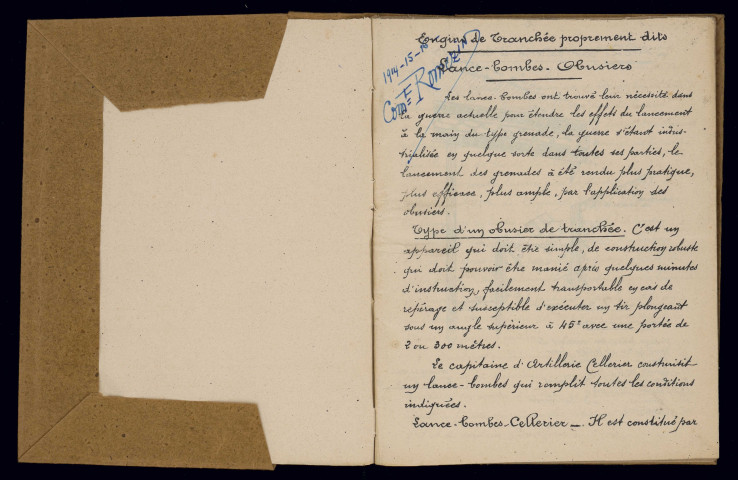 Engins de Tranchée proprement dits
1914-15-16
Comt ROMAIN
Lance-bombes - Obusiers
Les lance-bombes ont trouvé leur nécessité dans
la guerre actuelle pour étendre les effets du lancement
à la main du type grenade, la guerre s'étant indus-
trialisée en quelque sorte dans toutes ses parties, le
lancement des grenades à été rendu plus pratique,
plus efficace, plus ample, par l'application des
obusiers.
Type d'un obusier de tranchée. C'est un
appareil qui doit être simple, de construction robuste
qui doit pouvoir être manié après quelques minutes
d'instruction, facilement transportable en cas de
repérage et susceptible d'exécuter un tir plongeant
sous un angle supérieur à 45° avec une portée de
2 ou 300 mètres.
Le capitaine d'Artillerie Cellerier construisit
un lance-bombes qui remplit toutes les conditions
indiquées.
Lance-bombes-Cellerier _. Il est constitué par